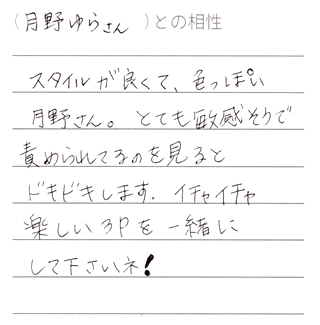 (月野ゆらさん)との相性
スタイルが良くて、色っぽい
月野さん。とても敏感そうで
責められてるのを見ると
ドキドキします。イチャイチャ
楽しい3Pを一緒に
して下さいネ!